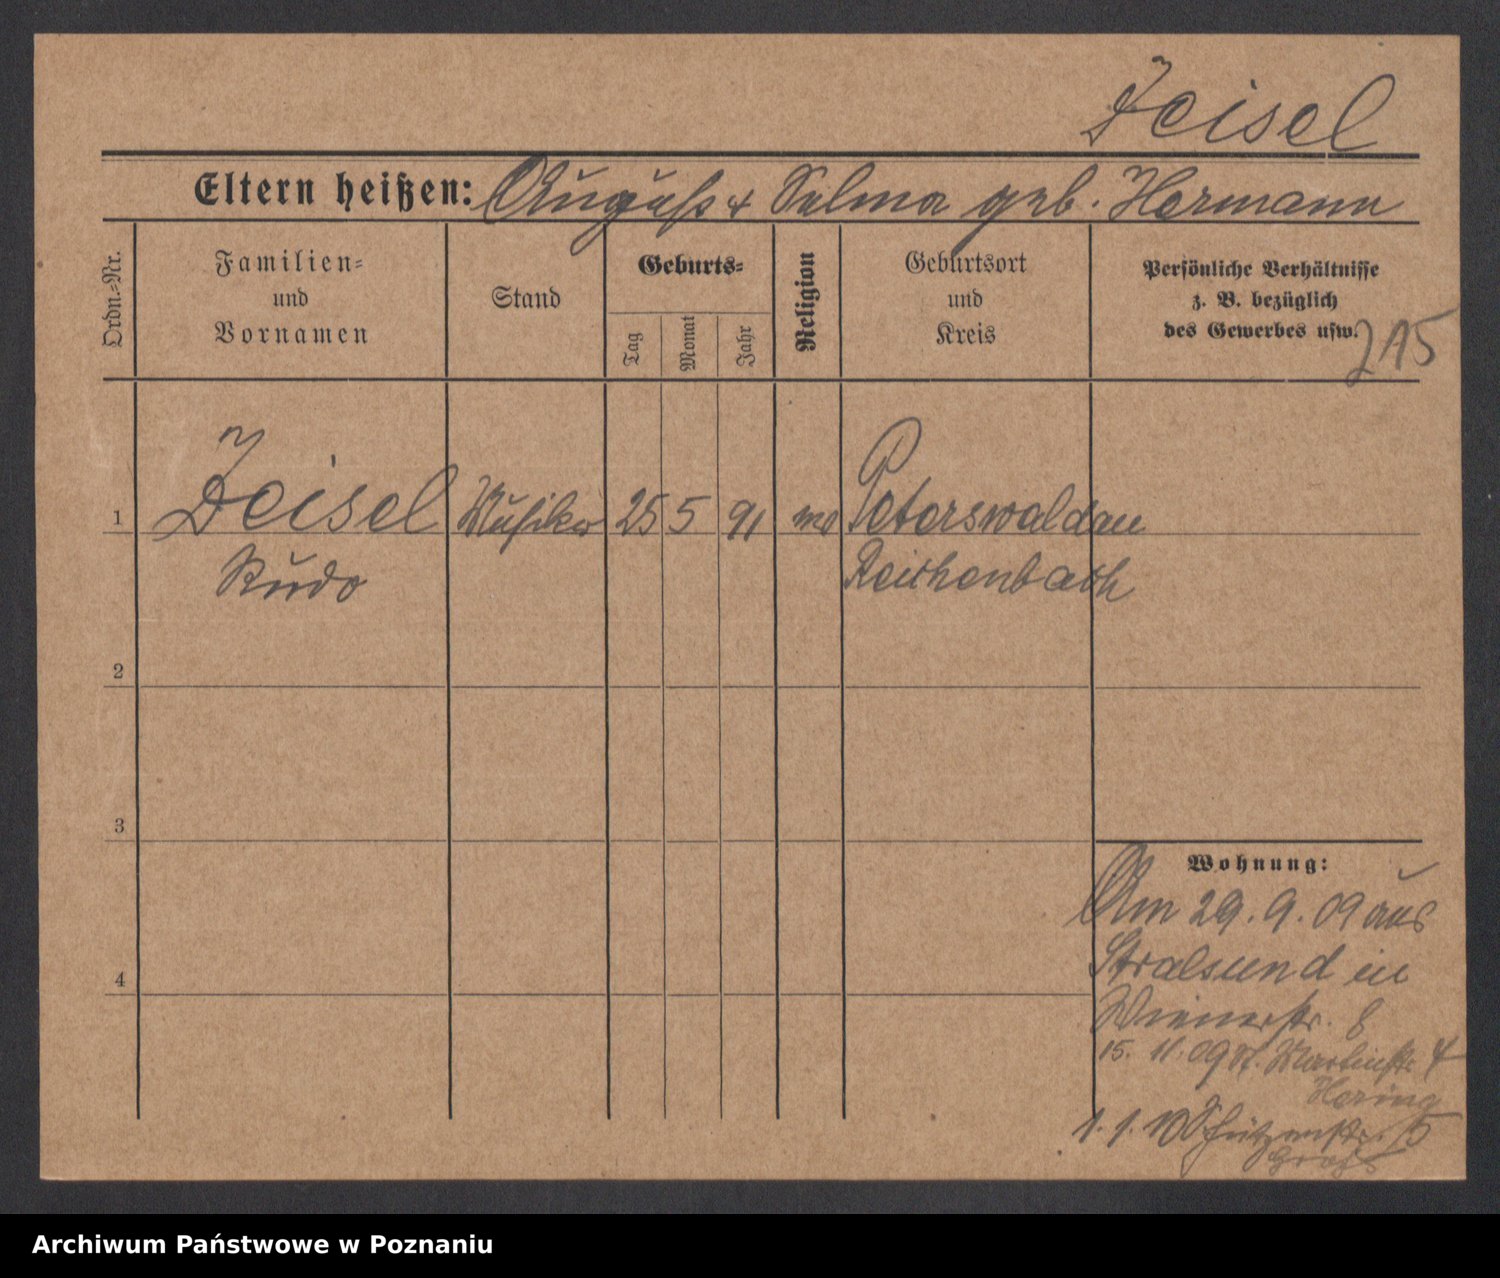 Zeisel
Eltern heißen: August + Selma geb. Hermann
Ordn.-Nr.
Familien-
und
Vornamen
Stand
Geburts-
Tag
Monat
Jahr
Religion
Geburtsort
und
Kreis
Persönliche Verhältnisse
z. B. bezüglich
des Gewerbes usw.
1 Zeisel Musiker 25 5 91 Peterswaldau
Reichenbach
2
3
4
Wohnung:
Am 29. 9. 09 aus
Stralsund in
Wienerstr. 8
15. 11. 09 Martinstr. 4
Hering
1. 1. 10 Schützenstr. 15